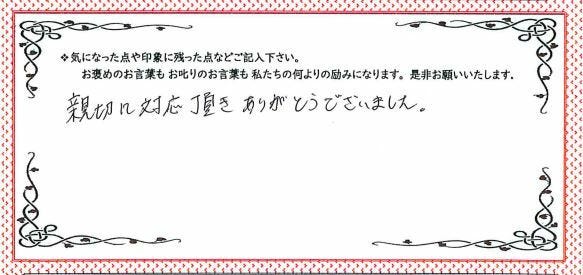 ❖気になった点や印象に残った点などご記入下さい。
お褒めのお言葉も お叱りのお言葉も 私たちの何よりの励みになります。是非お願いいたします.
親切に対応頂きありがとうございました。